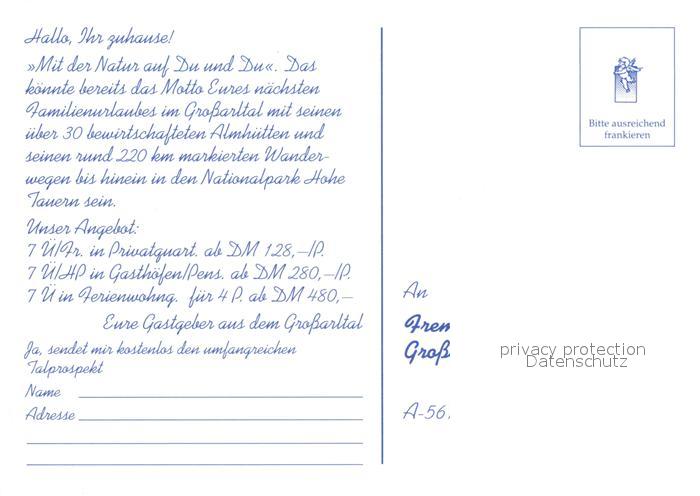 Hallo, Ihr zuhause!
»Mit der Natur auf Du und Du«. Das
könnte bereits das Motto Eures nächsten
Familienurlaubes im Großarltal mit seinen
über 30 bewirtschafteten Almhütten und
seinen rund 220 km markierten Wander-
wegen bis hinein in den Nationalpark Hohe
Tauern sein.
Unser Angebot:
7 Ü/Fr. in Privatquart. ab DM 128,–/P.
7 Ü/HP in Gasthöfen/Pens. ab DM 280,–/P.
7 Ü in Ferienwohng. für 4 P. ab DM 480,–
Eure Gastgeber aus dem Großarltal
Ja, sendet mir kostenlos den umfangreichen
Talprospekt
Name
Adresse
Bitte ausreichend
frankieren
An
Frem
Groß
privacy protection
Datenschutz
A-56